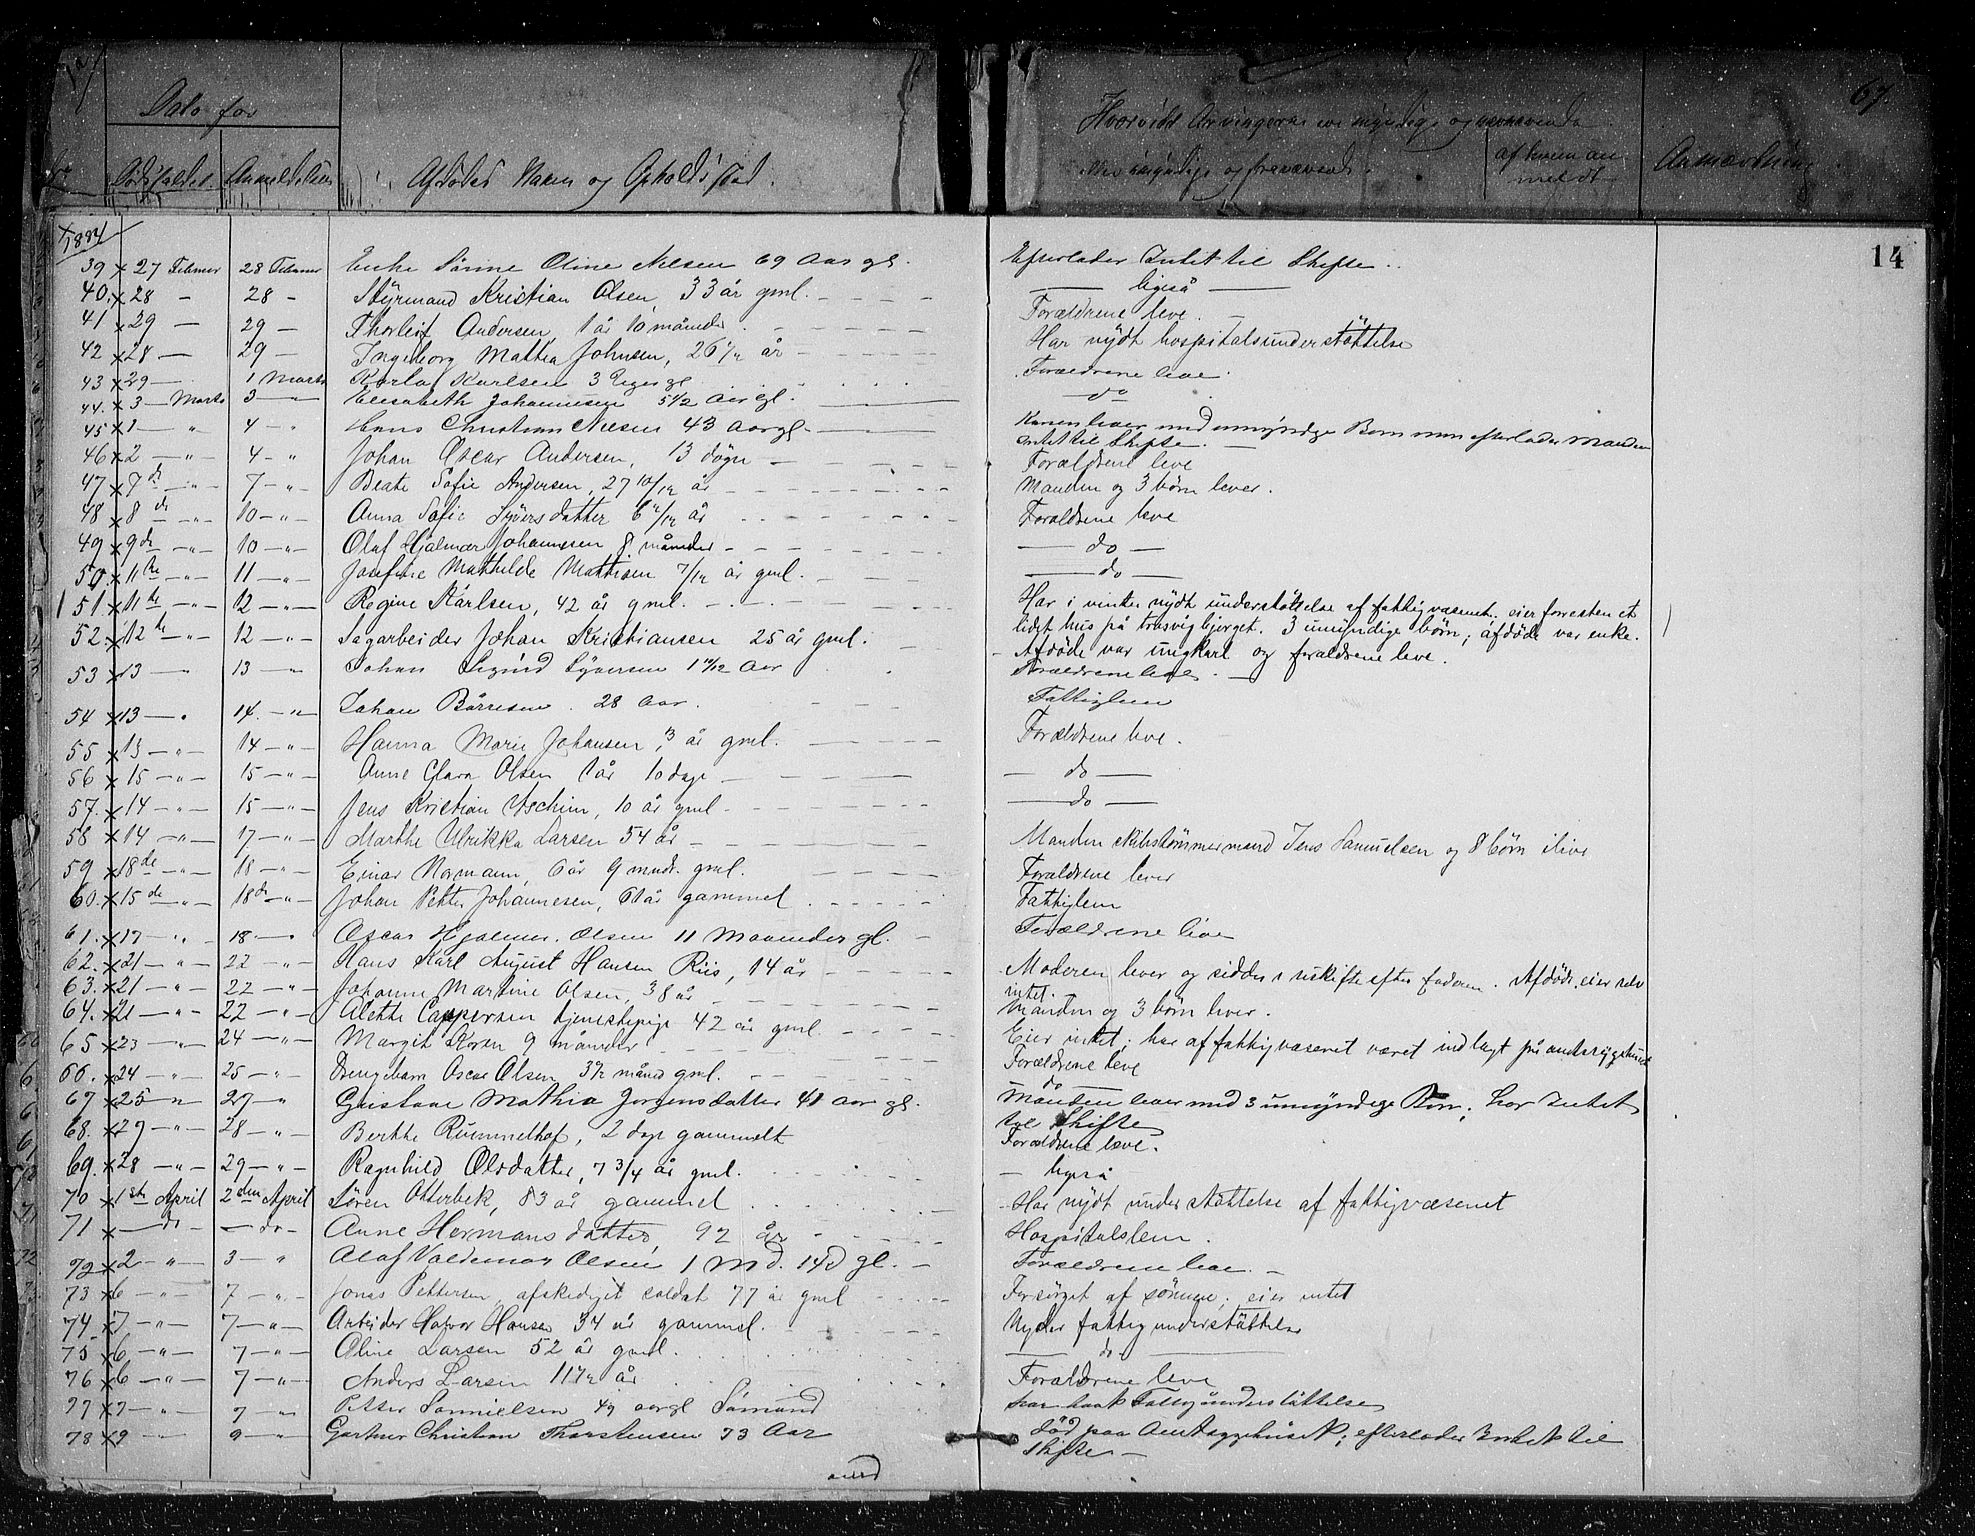 Dato for
Dødsfaldet. Anmeldelsen Afdødes Navn og Opholdsstad.
Hvorvidt Arvingerne ere myndige og nærværende
eller umyndige og fraværende. af hvem anmeldt Anmærkning
67.
14
1884
39 x 27 Februar 28 Februar Enke Sørine Oline Nilsen 69 Aar gl. Efterlader Intet til Skifte.
40. x 28 — 28 — Styrmand Kristian Olsen, 33 år gml. — ligeså —
41 x 29 — 29 — Thorleif Andersen, 1 år 10 måneder. Forældrene leve.
42 x 28 — 29 — Ingeborg Mathea Johnsen, 26 1/2 år Har nydt hospitalsunderstøttelse
43 x 29 — 1 Marts Karlof Karlsen 3 Uger gl Forældrene leve.
44. x 3 — Marts 3 — " Elisabeth Johannesen 5 1/2 Aar gl. — do —
45 x 1 — " 4 — " Hans Christian Nilsen 43 Aar gl. Konen lever med umyndige Børn men efterlader Manden
intet til Skifte.
46 x 2 — " — 4 — " Johan Oscar Andersen, 13 døgn Forældrene leve
47 x 7 de — " — 7 — " — Beate Sofie Andersen, 27 10/12 år Manden og 3 børn lever.
48 x 8 de — " — 10 — " — Anna Sofie Syversdatter 6 /12 år Forældrene leve
49 x 9 de — " — 10 — " — Olaf Hjalmar Johannesen 8 måneder — do —
50. x 11 te — " — 11 — " — Josefine Mathilde Mathisen 7/12 år gml. — do —
51. x 11 te — " — 12 — " — Regine Karlsen, 42 år gml. Har i vinter nydt understøttelse af fattigvæsenet; eier forresten et
lidet hus på trosvigbjerget. 3 umyndige børn; afdøde var enke.
52. x 12 te — " — 12 — " — Sagarbeider Johan Kristiansen 25 år gml. Afdøde var ungkarl og forældrene leve.
53 x 13 — " 13 — " Johan Sigurd Syversen 1 /12 Aar Forældrene leve.
54 x 13 — " 14. — " — Johan Børresen. 28 Aar. Fattiglem
55 x 13 — " — 14 — " — Hanna Marie Johansen, 3 år gml. Forældrene leve.
56 x 15 — " — 15 — " — Anne Clara Olsen 1 år 10 dage — do —
57. x 14 — " — 15 — " — Jens Kristian Aschim, 10 år gml. — do —
58 x 14 — " — 17 — " — Marthe Ulrikka Larsen 54 år Manden skibstømmermand Jens Samuelsen og 8 børn ilive
59 x 18 de — " — 18 — " — Einar Normann, 6 år 9 mndr. gml. Forældrene lever
60. x 15 de — " — 18 de — " — Johan Petter Johannesen, 61 år gammel Fattiglem
61. x 17 — " — 18 — " Oscar Hjalmer Olsen 11 Maaneder gl. Forældrene leve
62. x 21 — " — 22 — " — Hans Karl August Hansen Riis, 14 år Moderen lever og sidder i uskifte efter faderen. Afdøde eier selv
intet.
63. x 21 — " — 22 — " — Johanne Martine Olsen, 38 år Manden og 3 børn lever.
64. x 21 — " — 22 — " — Alette Caspersen tjenestepige 42 år gml. Eier intet; har af fattigvæsenet været indlagt på amtssygehuset
65 x 23 — " — 24 — " — Margit Koren 9 måneder Forældrene leve
66. x 24 — " — 25 — " — Drengebarn Oscar Olsen 3 1/2 måned gml. do
67 x 25 — " 27 — " Gustava Mathia Jørgensdatter 41 Aar gl. Manden lever med 3 umyndige Børn; har Intet
til Skifte
68. x 27 — " — 28 — " — Berthe Rummelhof, 2 dage gammelt Forældrene leve.
69. x 28 — " — 29 — " — Ragnhild Olsdatter, 7 3/4 år gml. — ligeså
70 x 1ste April 2den April Søren Otterbek, 83 år gammel Har nydt understøttelse af fattigvæsenet
71 x — do — — do — Anne Hermansdatter, 92 år Hospitalslem.
72 x 2 — " — 3 — " Olaf Valdemar Olsen 1 Md. 14 d gl. Forældrene leve.
73 x 6 — " — 7 — " — Jonas Pettersen, afskediget soldat 77 år gml Forsørget af sønnen; eier intet
74. x 7 — " — 7 — " — Arbeider Halvor Hansen 34 år gammel. Nyder fattigunderstøttelse
75 x 6 — " — 7 — " — Oline Larsen 52 år gml. — do —
76 x 6 — " — 7 — " — Anders Larsen 11 1/2 år Forældrene leve
77 x 7 — " — 7 — " — Petter Samuelsen 49 aar gl Sømand har havt Fattigunderstøttelse
78 x 9 — " — 9 — " — Gartner Christian Thorstensen 73 Aar død paa Amtssygehuset; efterlader Intet til
Skifte —